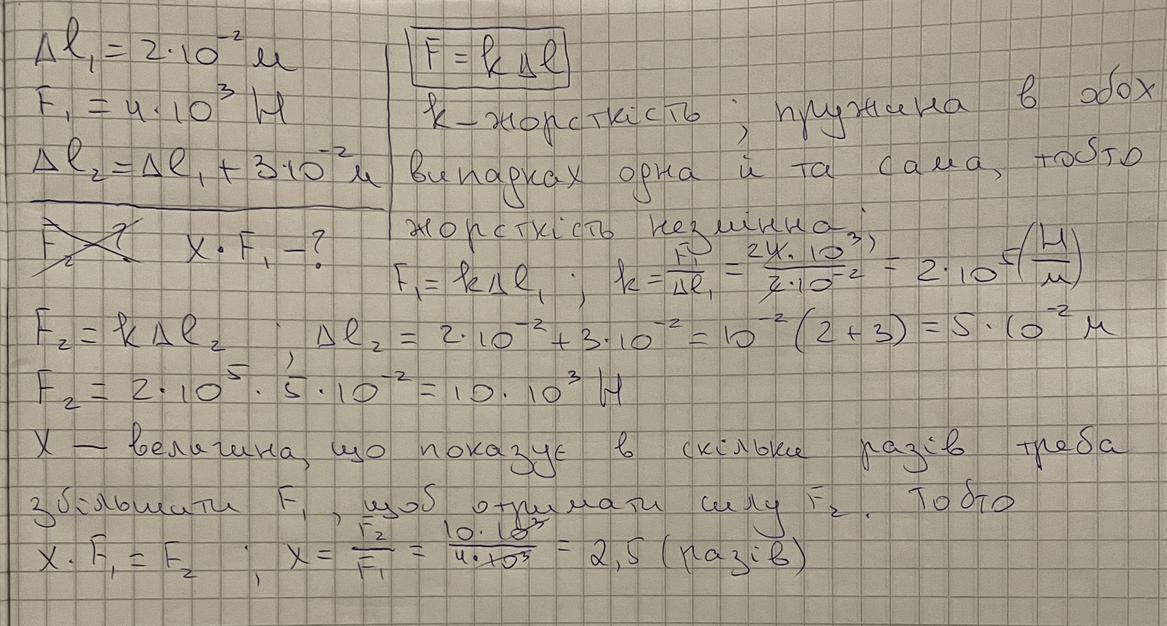 Δl₁ = 2·10⁻² м
F₁ = 4·10³ Н
Δl₂ = Δl₁ + 3·10⁻² м
F₂ – ? x · F₁ – ?
F = kΔl
k – жорсткість ; пружина в обох
випадках одна й та сама, тобто
жорсткість незмінна;
F₁ = kΔl₁ ; k = F₁/Δl₁ = 24·10³/2·10⁻² = 2·10⁵ (Н/м)
F₂ = kΔl₂ ; Δl₂ = 2·10⁻² + 3·10⁻² = 10⁻² (2+3) = 5·10⁻² м
F₂ = 2·10⁵ · 5·10⁻² = 10·10³ Н
x — величина, що показує в скільки разів треба
збільшити F₁, щоб отримати силу F₂. Тобто
x · F₁ = F₂ ; x = F₂/F₁ = 10·10³/4·10³ = 2,5 (разів)